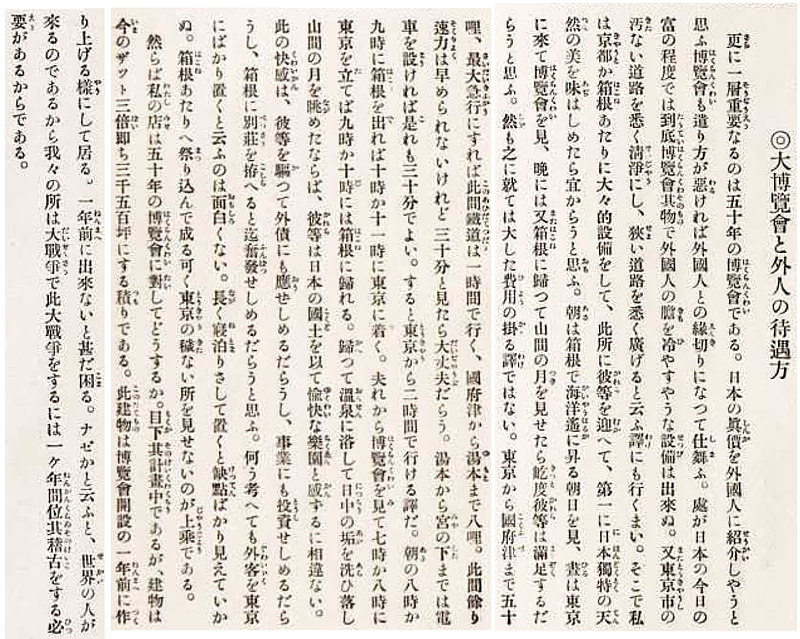 ◎大博覽會と外人の待遇方
更に一層重要なるのは五十年の博覽會である。日本の眞價を外國人に紹介しやうと
思ふ博覽會も遣り方が惡ければ外國人との緣切りになつて仕舞ふ。處が日本の今日の
富の程度では到底博覽會其物で外國人の膽を冷やすやうな設備は出來ぬ。又東京市の
汚ない道路を悉く淸淨にし、狹い道路を悉く廣げると云ふ譯にも行くまい。そこで私
は京都か箱根あたりに大々的設備をして、此所に彼等を迎へて、第一に日本獨特の天
然の美を味はしめたら宜からうと思ふ。朝は箱根で海洋遙に昇る朝日を見、晝は東京
に來て博覽會を見、晩には又箱根に歸つて山間の月を見せたら屹度彼等は滿足するだ
らうと思ふ。然も之に就ては大した費用の掛る譯ではない。東京から國府津まで五十
哩、最大急行にすれば此間鐵道は一時間で行く、國府津から湯本まで八哩。此間餘り
速力は早められないけれど三十分と見たら大丈夫だらう。湯本から宮の下までは電
車を設ければ是れも三十分でよい。すると東京から二時間で行ける譯だ。朝の八時か
九時に箱根を出れば十時か十一時に東京に着く。夫れから博覽會を見て七時か八時に
東京を立てば九時か十時には箱根に歸れる。歸つて溫泉に浴して日中の垢を洗ひ落し
山間の月を眺めたならば、彼等は日本の國土を以て愉快な樂園と感ずるに相違ない。
此の快感は、彼等を驅つて外債にも應ぜしめるだらうし、事業にも投資せしめるだら
うし、箱根に別莊を拵へると迄奮發せしめるだらうと思ふ。何う考へても外客を東京
にばかり置くと云ふのは面白くない。長く寢泊りさして置くと缺點ばかり見えていか
ぬ。箱根あたりへ祭り込んで成る可く東京の穢ない所を見せないのが上乘である。
然らば私の店は五十年の博覽會に對してどうするか。目下其計畫中であるが、建物は
今のザツト三倍卽ち三千五百坪にする積りである。此建物は博覽會開設の一年前に作
り上げる樣にして居る。一年前に出來ないと甚だ困る。ナゼかと云ふと、世界の人が
來るのであるから我々の所は大戰爭で此大戰爭をするには一ケ年間位其稽古をする必
要があるからである。